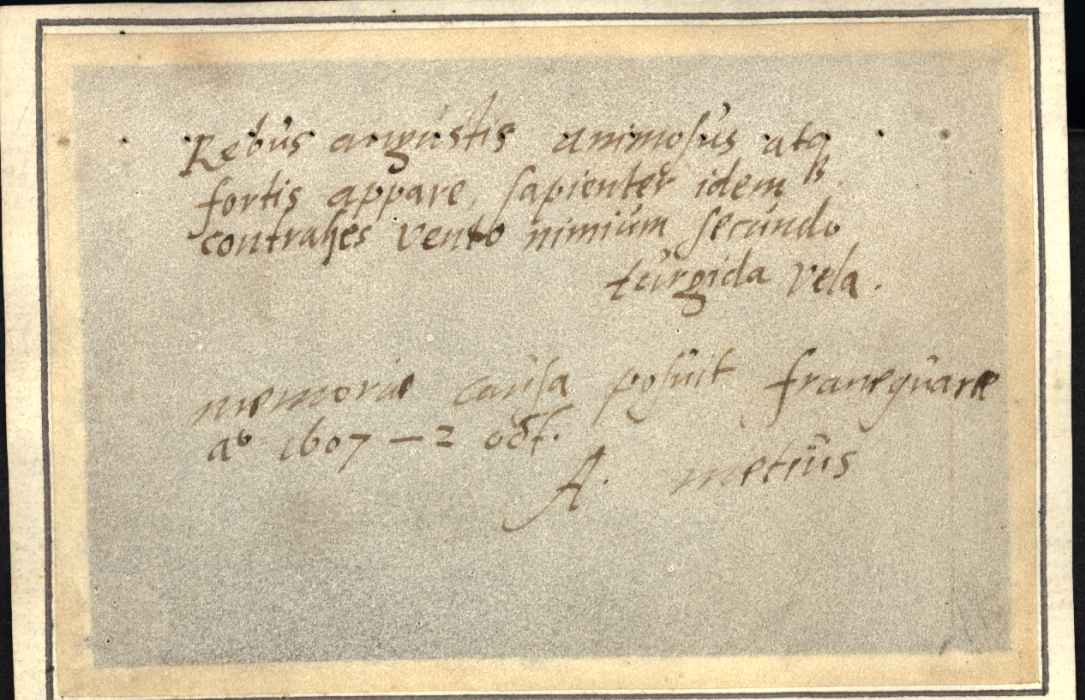 Rebus angustis animosus atq
fortis appare, sapienter idem
contrahes vento nimium secundo
turgida vela.
memoriæ causa posuit franequaræ
ao 1607 – 2 oct.
A. metius